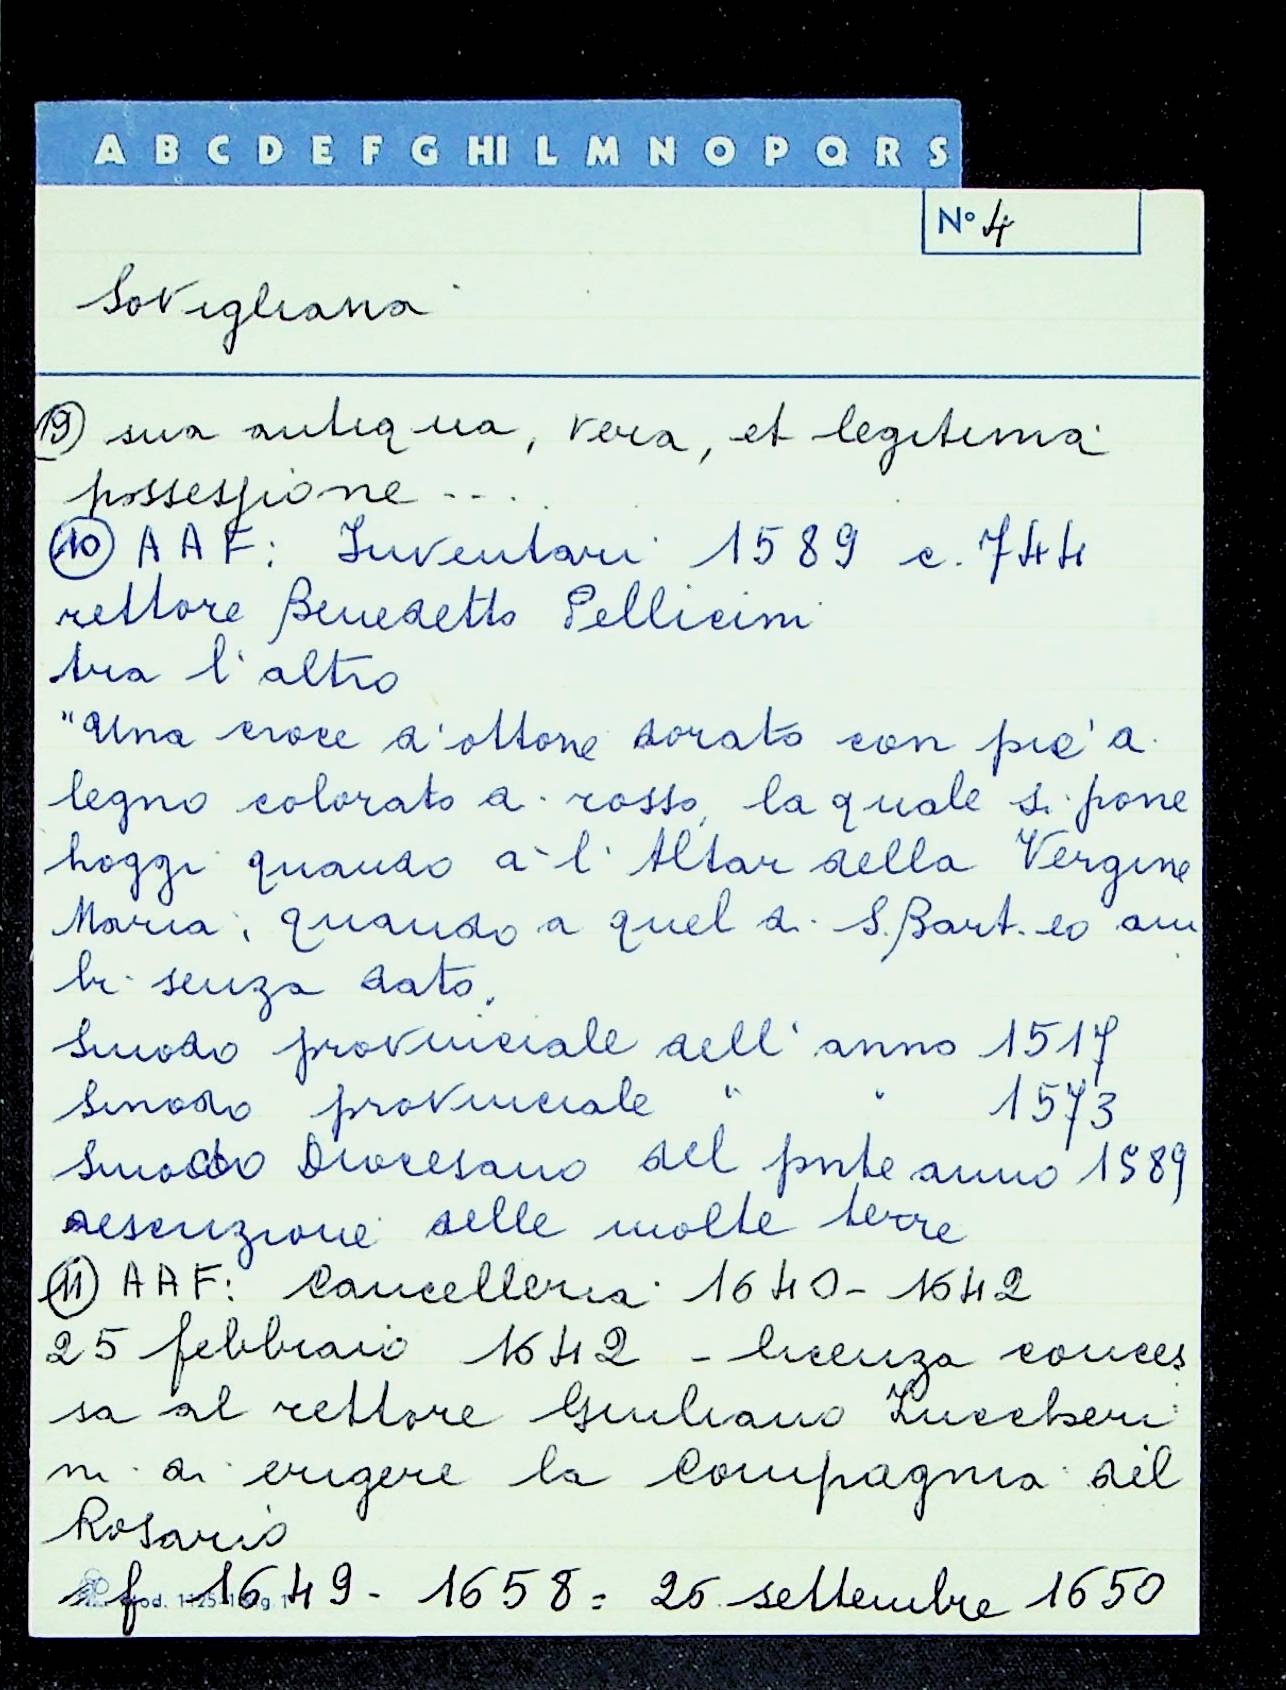 A B C D E F G HI L M N O P Q R S
N° 4
Sovigliana
19) sua antiqua, vera, et legitima
possessione ...
10) AAF: Inventari 1589 c. 744
rettore Benedetto Pellicini
tra l'altro
"Una croce d'ottone dorato con pie' di
legno colorato di rosso, la quale si pone
hoggi quando a l'Altar della Vergine
Maria, quando a quel di S. Bart.eo am
bi senza dato.
Sinodo provinciale dell'anno 1517
Sinodo provinciale " " 1573
Sinodo Diocesano del pnte anno 1589
descrizione delle molte terre
11) AAF: Cancelleria 1640 - 1642
25 febbraio 1642 - licenza conces
sa al rettore Giuliano Zuccheri
ni di erigere la Compagnia del
Rosario
f 1649 - 1658 = 26 settembre 1650